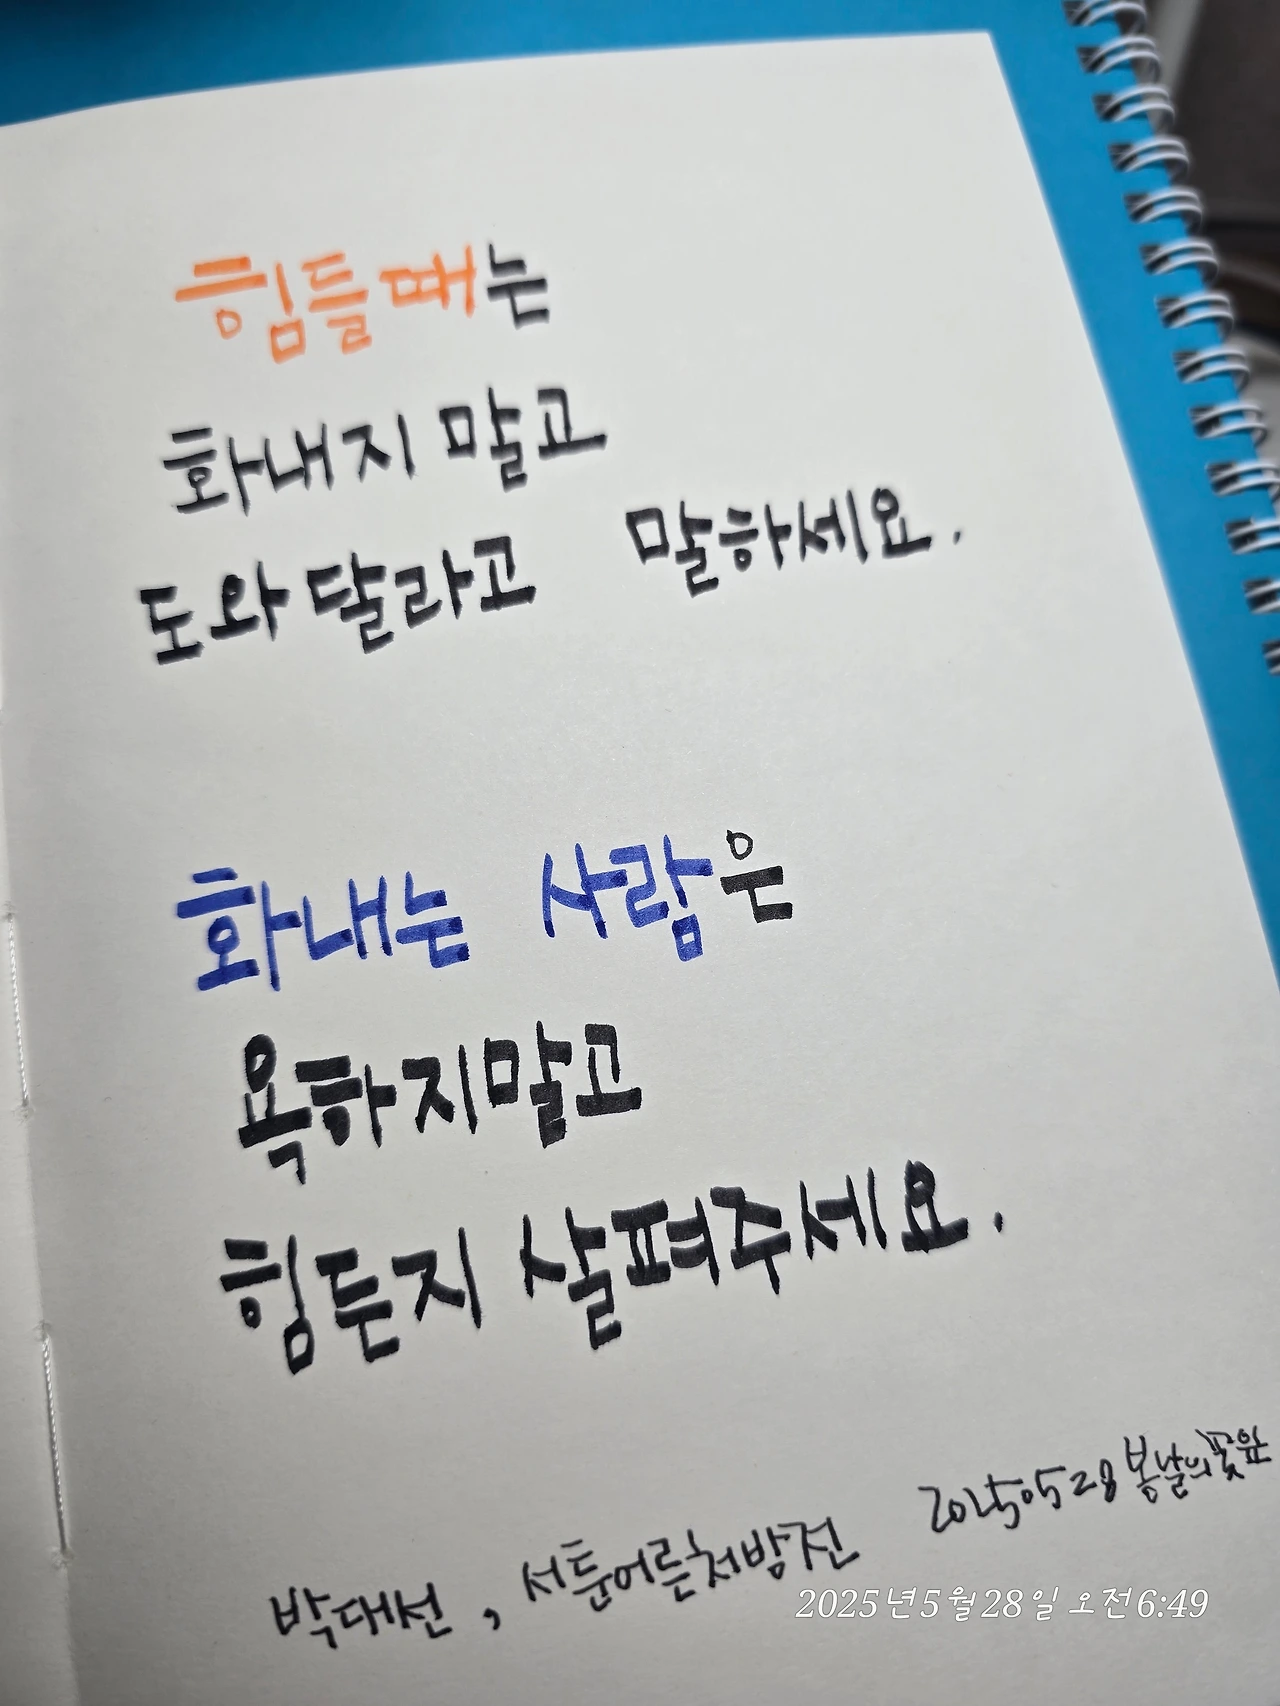 힘들때는
화내지 말고
도와 달라고 말하세요.
화내는 사람은
욕하지말고
힘든지 살펴주세요.
20250528 봄날의꽃잎
박대선, 서툰어른처방전
2025년5월28일 오전6:49